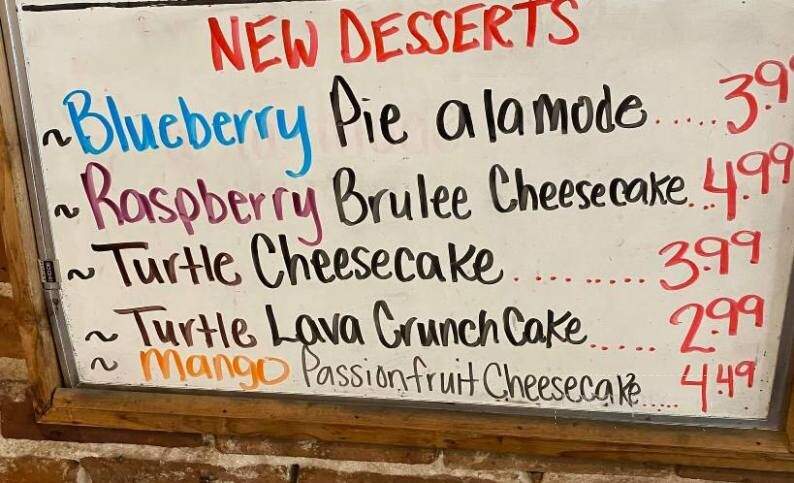 NEW DESSERTS
~Blueberry Pie alamode.....3.9
~Raspberry Brulee Cheesecake...4.99
~Turtle Cheesecake.........3.99
~Turtle Lava Crunch Cake.....2.99
~Mango Passionfruit Cheesecake....4.49